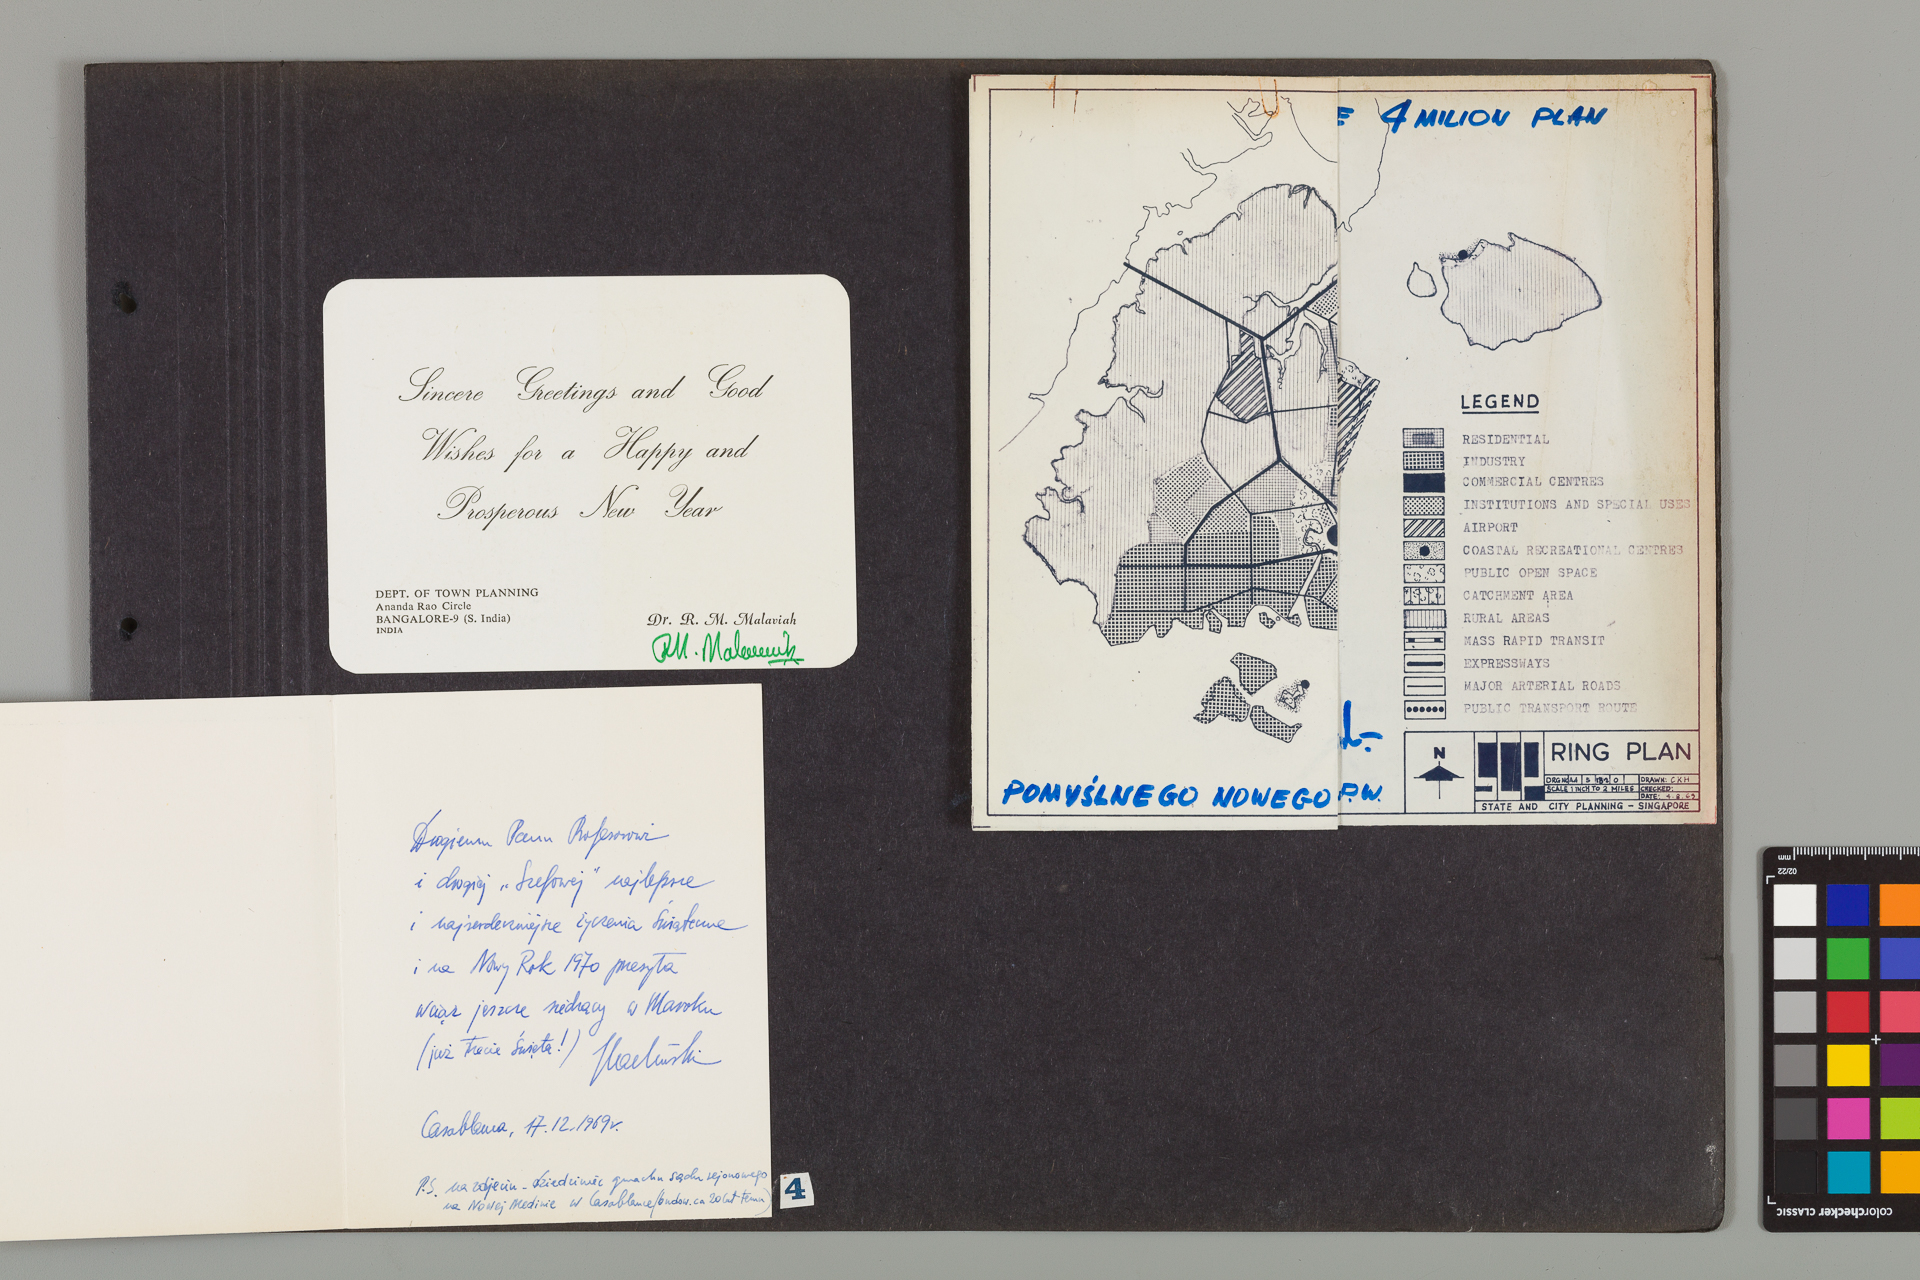 Sincere Greetings and Good
Wishes for a Happy and
Prosperous New Year
DEPT. OF TOWN PLANNING
Ananda Rao Circle
BANGALORE-9 (S. India)
INDIA
Dr. R. M. Malaviah
R.M. Malaviah
Drogiemu Panu Profesorowi
i drogiej „Szefowej" najlepsze
i najserdeczniejsze życzenia świąteczne
i na Nowy Rok 1970 przesyła
wciąż jeszcze siedzący w Maroku
(już trzecie święta!)
Casablanca, 17.12.1969r.
P.S. na zdjęciu - dziedziniec gmachu sądu rejonowego
na Nowej Medinie w Casablance (budow. ca 20 lat temu)
4
E 4 MILION PLAN
LEGEND
RESIDENTIAL
INDUSTRY
COMMERCIAL CENTRES
INSTITUTIONS AND SPECIAL USES
AIRPORT
COASTAL RECREATIONAL CENTRES
PUBLIC OPEN SPACE
CATCHMENT AREA
RURAL AREAS
MASS RAPID TRANSIT
EXPRESSWAYS
MAJOR ARTERIAL ROADS
PUBLIC TRANSPORT ROUTE
POMYŚLNEGO NOWEGO P.W.
N
RING PLAN
SCALE 1 INCH TO 2 MILES
DRAWN: CKH
CHECKED:
DATE:
STATE AND CITY PLANNING - SINGAPORE
mm
02/22
colorchecker CLASSIC